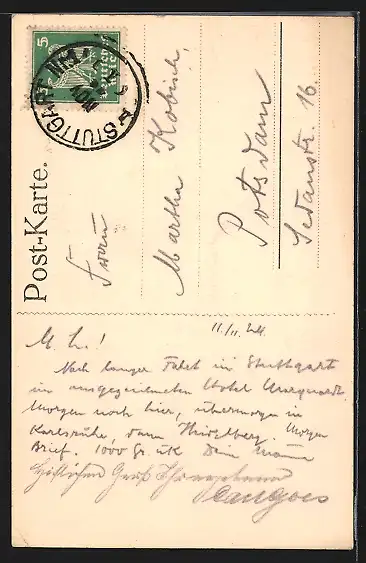 Post-Karte.
5
DEUTSCHES REICH
STUTTGART
Frau
Martha Kobisch,
Potsdam
Sedanstr. 16.
11/11. 24.
M. L.!
Nach langer Fahrt in Stuttgart
im ausgezeichneten Hotel Marquardt.
Morgen noch hier, übermorgen in
Karlsruhe, dann Heidelberg. Morgen
Brief. 1000 Gr. u K Dein
Herzlichen Gruß Ihr